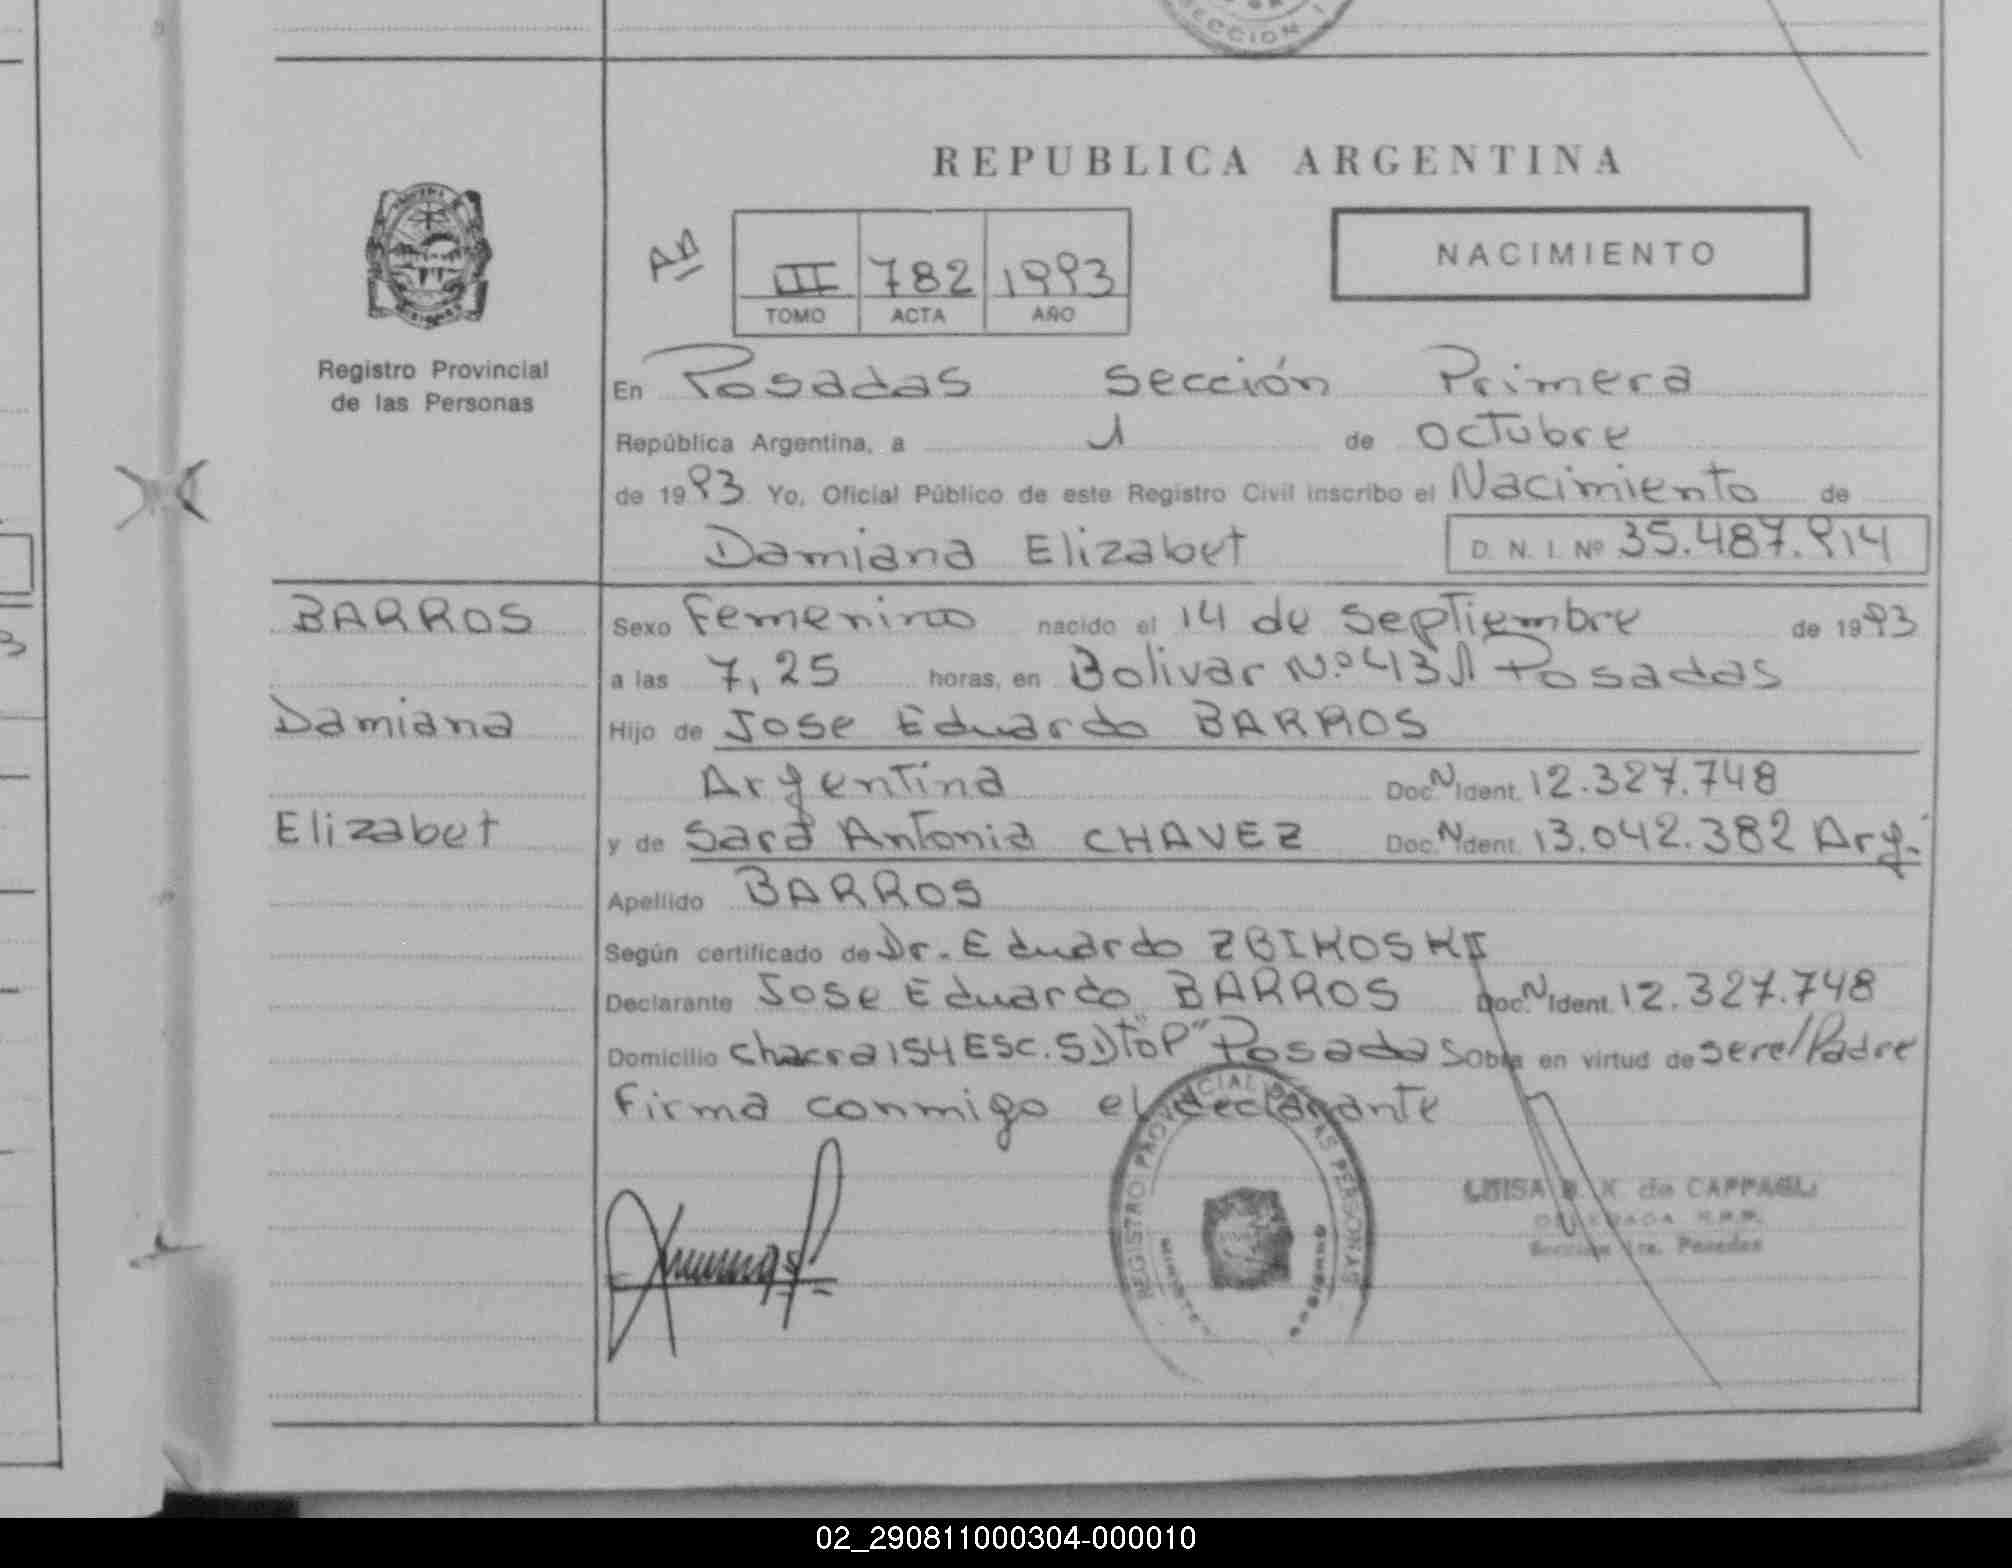 SECCION 1
REPUBLICA ARGENTINA
An
III 782 1993
TOMO ACTA AÑO
NACIMIENTO
Registro Provincial
de las Personas
En Posadas Sección Primera
República Argentina, a 1 de Octubre
de 1993 Yo, Oficial Público de este Registro Civil inscribo el Nacimiento de
Damiana Elizabet D. N. I. Nº 35.487.914
BARROS
Damiana
Elizabet
Sexo Femenino nacido el 14 de Septiembre de 1993
a las 7,25 horas, en Bolivar Nº Posadas
Hijo de Jose Eduardo BARROS
Argentina Doc. N Ident. 12.327.748
y de Sara Antonia CHAVEZ Doc. N Ident. 13.042.382 Arg.
Apellido BARROS
Según certificado de Dr. Eduardo ZBIKOSKI
Declarante Jose Eduardo BARROS Doc. N Ident. 12.327.748
Domicilio chacra 154 Esc. 5 Dto "P" Posadas Obra en virtud de ser el Padre
Firma conmigo el declarante
REGISTRO PROVINCIAL DE LAS PERSONAS
MISIONES
LUISA de CAPPAGLI
DELEGADA R.P.P.
Sección 1ra. Posadas
02_290811000304-000010